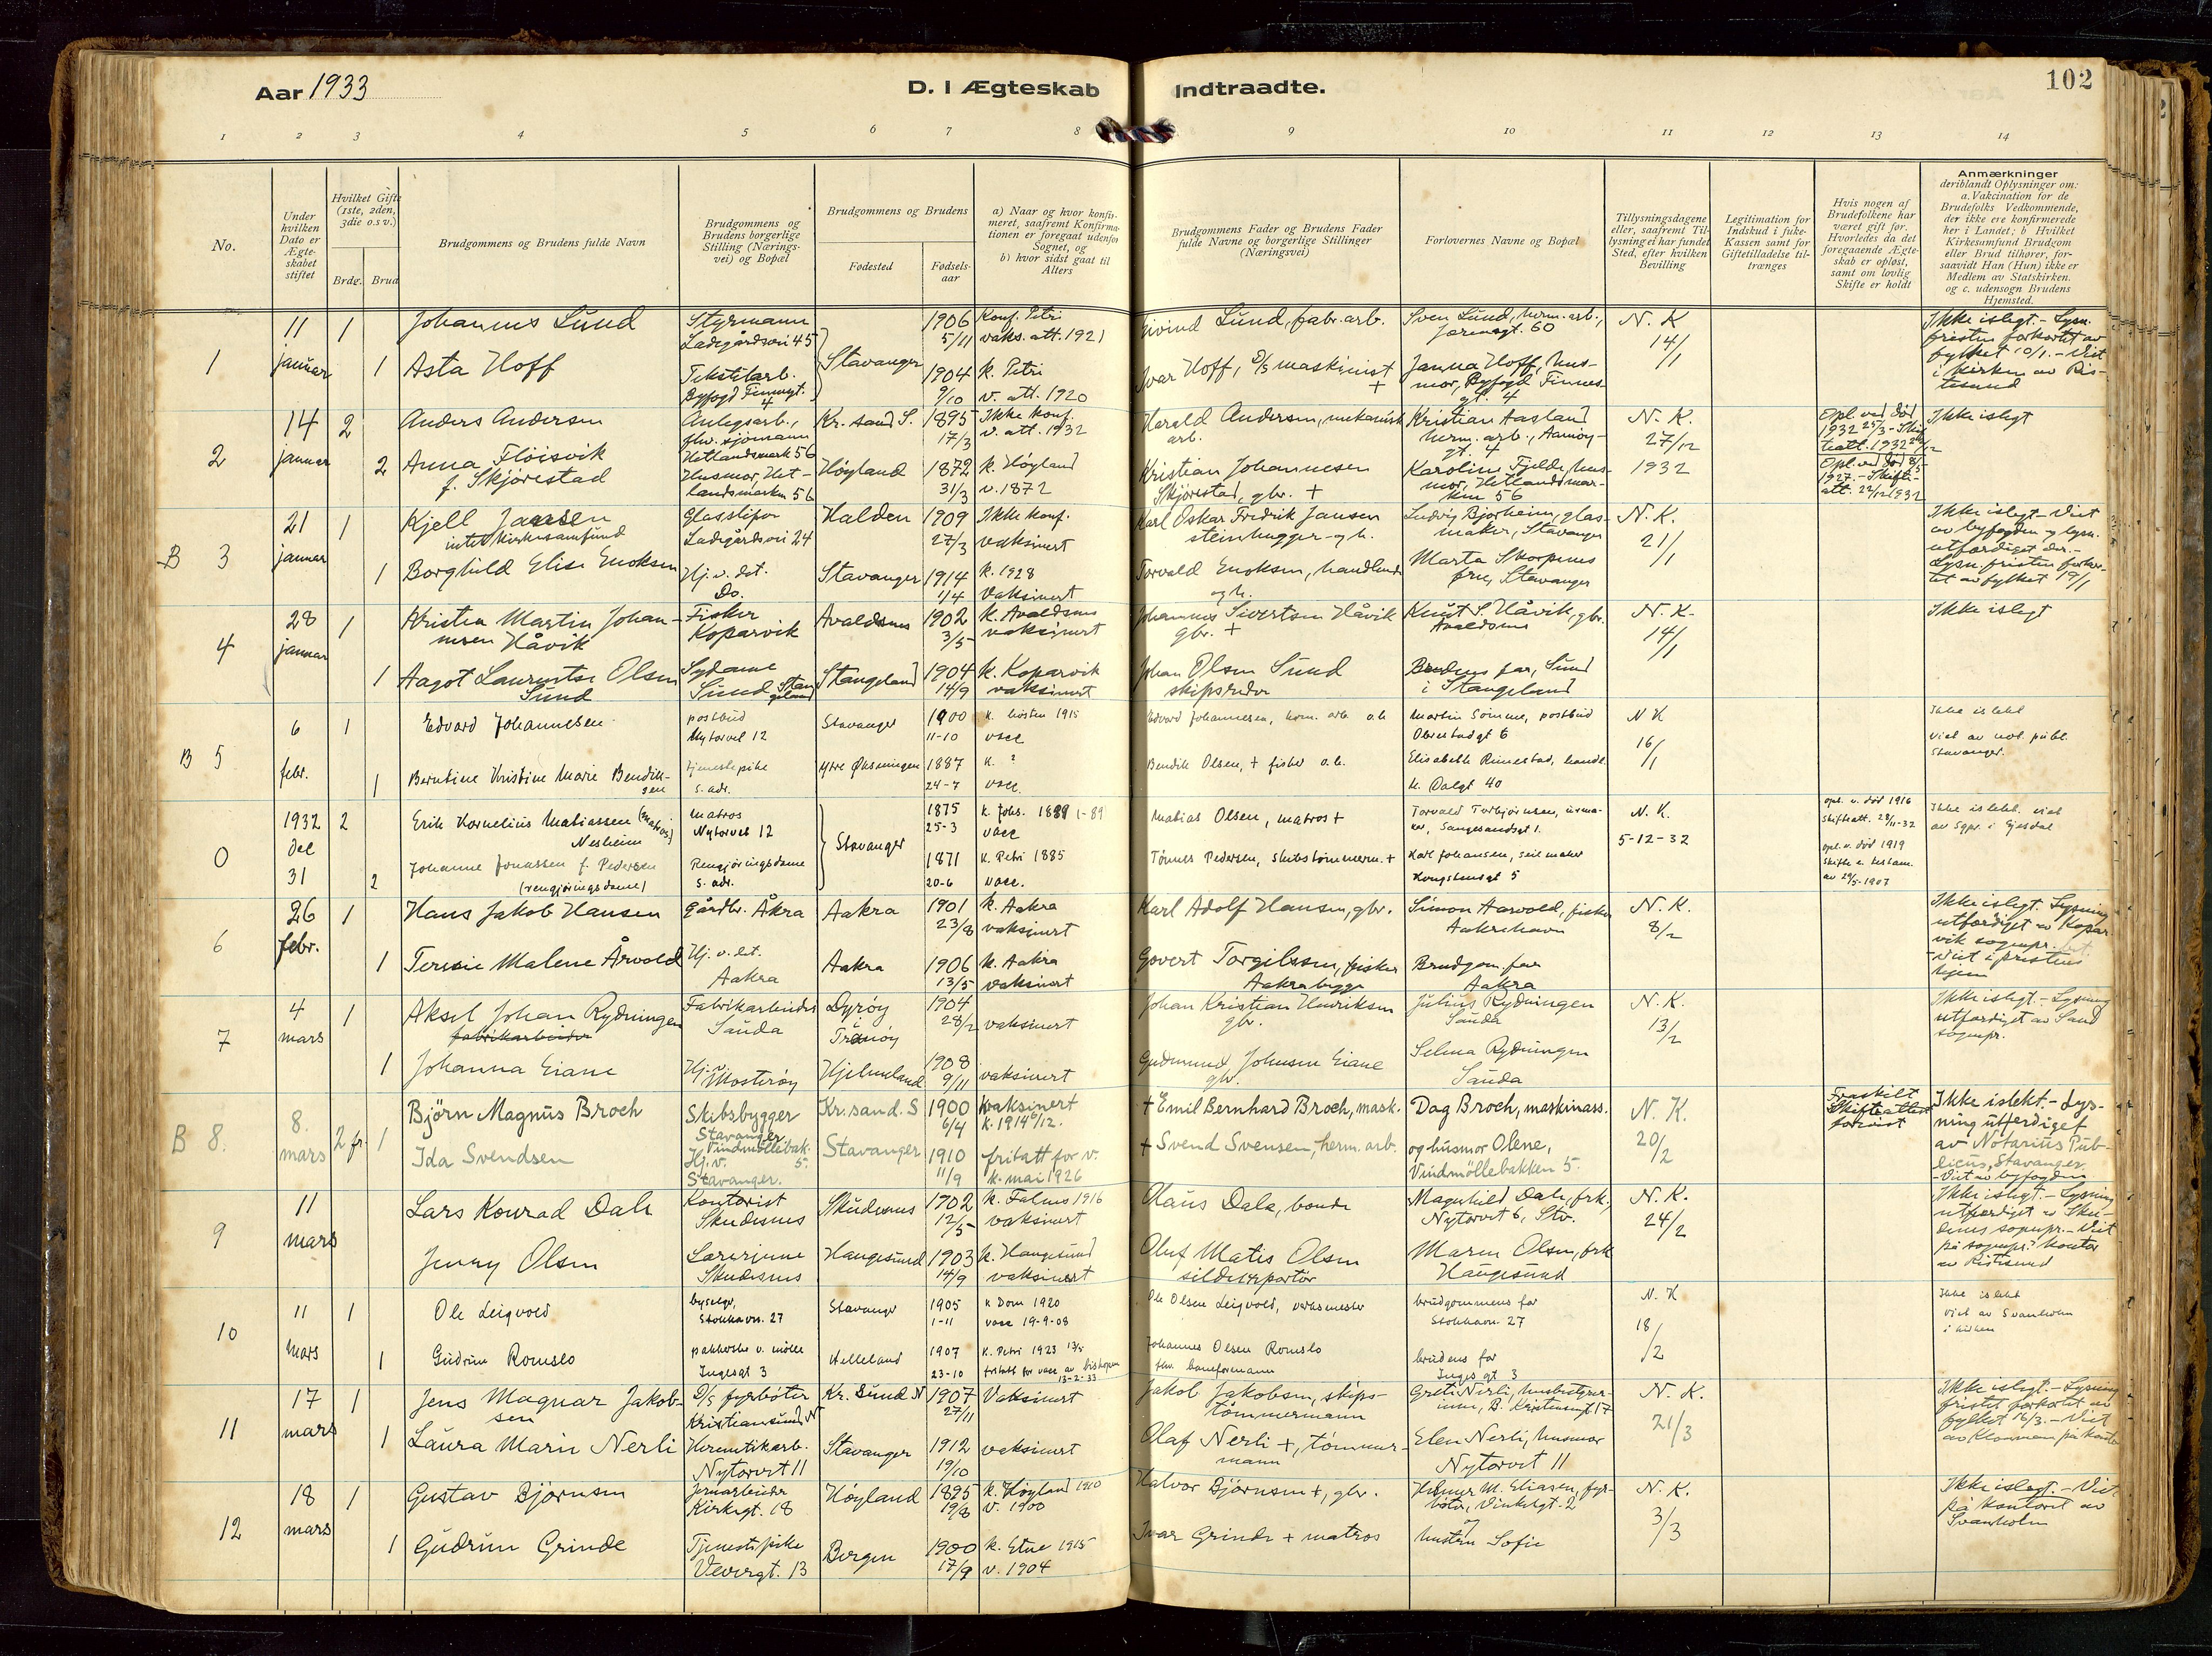 Aar 1933
D. I Ægteskab Indtraadte.
102
1 2 3 4 5 6 7 8 9 10 11 12 13 14
No.
Under hvilken Dato er Ægteskabet stiftet
Hvilket Gifte (1ste, 2den, 3die o.s v.)
Brdg. Brud
Brudgommens og Brudens fulde Navn
Brudgommens og Brudens borgerlige Stilling (Næringsvei) og Bopæl
Brudgommens og Brudens
Fødested
Fødselsaar
a) Naar og hvor konfirmeret, saafremt Konfirmationen er foregaat udenfor Sognet, og
b) hvor sidst gaat til Alters
Brudgommens Fader og Brudens Fader fulde Navne og borgerlige Stillinger (Næringsvei)
Forlovernes Navne og Bopæl
Tillysningsdagene eller, saafremt Tillysning ei har fundet Sted, efter hvilken Bevilling
Legitimation for Indskud i fuke-Kassen samt for Giftetilladelse tiltrænges
Hvis nogen af Brudefolkene har været gift før. Hvorledes da det foregaaende Ægteskab er opløst, samt om lovlig Skifte er holdt
Anmærkninger
deriblandt Oplysninger om: a. Vakcination for de Brudefolks Vedkommende, der ikke ere konfirmerede her i Landet; b Hvilket Kirkesamfund Brudgom eller Brud tilhører, forsaavidt Han (Hun) ikke er Medlem av Statskirken. og c. udensogn Brudens Hjemsted.
1
11 januar
1 Johannes Lund
Styrmann Ladegårdsvei 45
1906 5/11
Konf. Petri vaks. att. 1921
Eivind Lund, fabr. arb.
Sven Lund, herm. arb., Jærengt. 60
N. K 14/1
Ikke islegt. - Lysn. fristen forkortet av fylket 10/1. - Viet i kirken av Ristesund
1 Asta Hoff
Tekstilarb. Byfogd Finnegt. 4
Stavanger
1904 9/10
k. Petri v. att. 1920
Ivar Hoff, D/S maskinist +
Janna Hoff, husmor, Byfogd Finnesgt. 4
2
14 januar
2 Anders Andersen
Anlegsarb., fhv. sjömann Hetlandsmark 56
Kr. sand S.
1895 17/3
Ikke konf. v. att. 1932
Harald Andersen, mekanisk arb.
Kristian Aasland herm. arb., Aamöygt. 4
N. K. 27/12 1932
Opl. ved död 1932 25/3 - Skifteatt. 1932
Ikke islegt
2 Anna Flöisvik f. Skjörestad
Husmor, Hetlandsmarken 56
Höyland
1872 31/3
k. Höyland v. 1872
Kristian Johannesen Skjörestad, gbr. +
Karoline Fjelde, husmor, Hetlandsmarken 56
Opl. ved död 1927. - Skifteatt. 22/12 1932
B 3
21 januar
1 Kjell Jansen
intet kirkesamfund
Glassliper Ladegårdsvei 24
Halden
1909 27/3
Ikke konf. vaksinert
Karl Oskar Fredrik Jansen steinhugger - o. h.
Ludvig Bjorheim, glasmaker, Stavanger
N. K. 21/1
Ikke islegt - Viet av byfogden og lysn. utferdiget der. - Lysn. fristen forkortet av fylket 19/1
1 Borghild Elise Enoksen
Hj. v. det. Do.
Stavanger
1914 1/4
k. 1928 Vaksinert
Torvald Enoksen, handlende o. h.
Marta Skorpenes frue, Stavanger
4
28 januar
1 Kristen Martin Johannesen Håvik
Fisker Koparvik
Avaldsnes
1902 3/5
k. Avaldsnes vaksinert
Johannes Sivertsen Håvik gbr. +
Knut S. Håvik, gbr. Avaldsnes
N. K. 14/1
Ikke islegt
1 Aagot Laurentse Olsen Sund
Sydame Sund Stangeland
Stangeland
1904 14/9
k. Koparvik vaksinert
Johan Olsen Sund skipsreder
Brudens far, Sund i Stangeland
B 5
6 febr.
1 Edvard Johannesen
postbud Nytorvet 12
Stavanger
1900 11-10
k. hösten 1915 vacc
Edvard Johannesen, kom. arb. o. h.
Martin Sömme, postbud Obrestadgt 6
N K 16/1
Ikke islekt viet av not. publ. Stavanger.
1 Berntine Kristine Marie Bendiksen
tjenestepike s. adr.
Ytre Øksningen
1887 24-7
k. ? vacc.
Bendik Olsen, + fisker o. h.
Elisabeth Rimestad, handl. k. Dalgt 40
0
1932 dec 31
2 Erik Kornelius Matiassen (matros) Nesheim
matros Nytorvet 12
Stavanger
1875 25-3
k. Johs. 1889 1-89 vacc
Matias Olsen, matros +
Torvald Torbjörnsen, urmaker, Sangesandsgt 1.
N. K. 5-12-32
opl. v. död 1916 skifteatt. 28/11-32
Ikke islekt. viet av sgpr. i Gjesdal
2 Johanne Jonassen f. Pedersen (rengjöringsdame)
Rengjöringsdame s. adr.
1871 20-6
k. Petri 1885 vacc.
Tönnes Pedersen, skibstömmerm. +
Karl Johansen, seilmaker Kongstensgt 5
opl. v. död 1919 skifte e. testam. av 29/5-1907
6
26 febr.
1 Hans Jakob Hansen
Gårdbr. Åkra
Aakra
1901 23/8
k. Aakra vaksinert
Karl Adolf Hansen, gbr.
Simon Aarvold, fisker Aakrehavn
N. K. 8/2
Ikke islegt. Lysning utferdiget av Koparvik sognepr. - viet i prestens hjem
1 Teresie Malene Årvold
Hj. v. det. Aakra
Aakra
1906 13/5
k. Aakra vaksinert
Govert Torgilssen, fisker Aakrabygge
Brudgom. far Aakra
7
4 mars
1 Aksel Johan Rydningen
fabrikarbeider
Fabrikarbeider Sauda
Dyröy Tranöy
1904 28/2
vaksinert
Johan Kristian Henriksen gbr.
Julius Rydningen Sauda
N. K. 13/2
Ikke islegt. - Lysning utferdiget av Sand sognepr.
1 Johanna Eiane
Hj. v. Mosteröy
Hjelmeland
1908 9/11
vaksinert
Gudmund Johnsen Eiane gbr.
Selma Rydningen Sauda
B 8.
8. mars
2 fr. Björn Magnus Broch
Skibsbygger Stavanger Vindmöllebak. 5.
Kr. sand. S
1900 6/4
Vaksinert k. 1914 6/12.
+ Emil Bernhard Broch, mask.
Dag Broch, maskinass.
N. K. 20/2
Fraskilt Skifteattest forevist
Ikke islekt. - Lysning utferdiget av Notarius Publicus, Stavanger - Viet av byfogden
1 Ida Svendsen
Hj. v. Stavanger.
Stavanger
1910 11/9
fritatt for v. k. mai 1926
+ Svend Svensen, herm. arb.
og husmor Olene, Vindmöllebakken 5.
9
11 mars
Lars Konrad Dale
Kontorist Skudesnes
Skudesnes
1902 12/5
k. Falnes 1916 vaksinert
Olaus Dale, bonde
Magnhild Dale, frk. Nytorvet 6, Stv.
N. K. 24/2
Ikke islegt. - Lysning utferdiget av Skudenes sognepr. - Viet på sognepr.s kontor av Ristesund
Jenny Olsen
Lærerinne Skudesnes
Haugesund
1903 14/9
k. Haugesund vaksinert
Oluf Matis Olsen sildeexportör
Maren Olsen, frk Haugesund
10
11 mars
1 Ole Leigvold
byselgr, Stokkavn. 27
Stavanger
1905 1-11
k Dom 1920 vacc 19-9-08
Ole Olsen Leigvold, verksmester
brudgommens far Stokkavn. 27
N. K 18/2
Ikke islekt viet av Svanholm i kirken
1 Gudrun Romslo
pakkerske v. mölle Ingesgt 3
Helleland
1907 23-10
k. Petri 1923 fritatt for vacc av biskopen 13-2-33
Johannes Olsen Romslo fhv. baneformann
brudens far Inges gt 3
11
17 mars
1 Jens Magnar Jakobsen
D/S fyrböter Kristiansund N
Kr. Sund N
1907 27/11
Vaksinert
Jakob Jakobsen, skipstömmermann
Greti Nerli, husbestyrerinne, B. Kristensengt 17
N. K. 21/3
Ikke islegt. - Lysning fristet forkortet av fylket 16/3. - Viet av Klonman på kontor
1 Laura Marie Nerli
Hermetikarb. Nytorvet 11
Stavanger
1912 19/10
vaksinert
Olaf Nerli +, tömmermann
Elen Nerli, husmor Nytorvet 11
12
18 mars
1 Gustav Björnsen
Jernarbeider Kirkegt. 18
Höyland
1895 19/8
k. Höyland 1910 v. 1900
Halvor Björnsen +, gbr.
Hilmer M. Eliasen, fyrböter, Vinkelgt. 2
N. K. 3/3
Ikke islegt. - Viet på kontoret av Svanholm
1 Gudrun Grinde
Tjenestepike Vevergt. 13
Bergen
1900 17/9
k. Etne 1915 v. 1904
Ivar Grinde + matros
og hustru Sofie